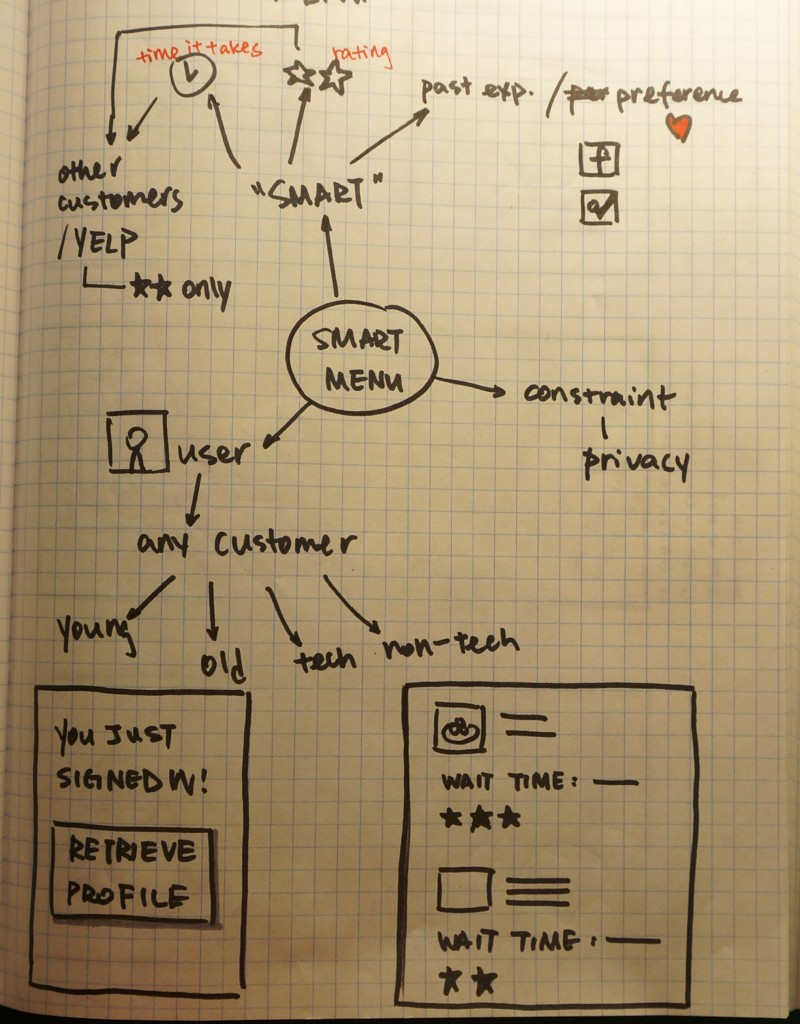 time it takes
rating
past exp. / preference
other
customers
/YELP
★★ only
"SMART"
SMART
MENU
constraint
privacy
user
any customer
young
old
tech
non-tech
YOU JUST
SIGNED IN!
RETRIEVE
PROFILE
WAIT TIME:
WAIT TIME: